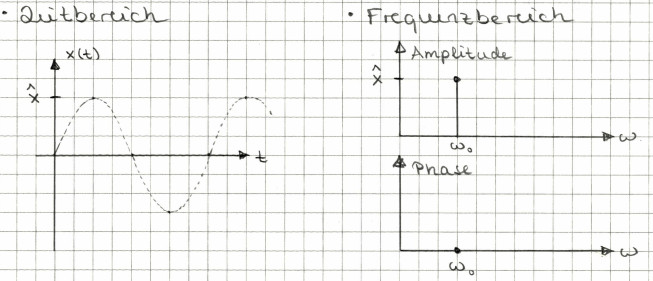 · Zeitbereich
x(t)
x̂
t
· Frequenzbereich
Amplitude
x̂
ω
ω₀
Phase
ω
ω₀